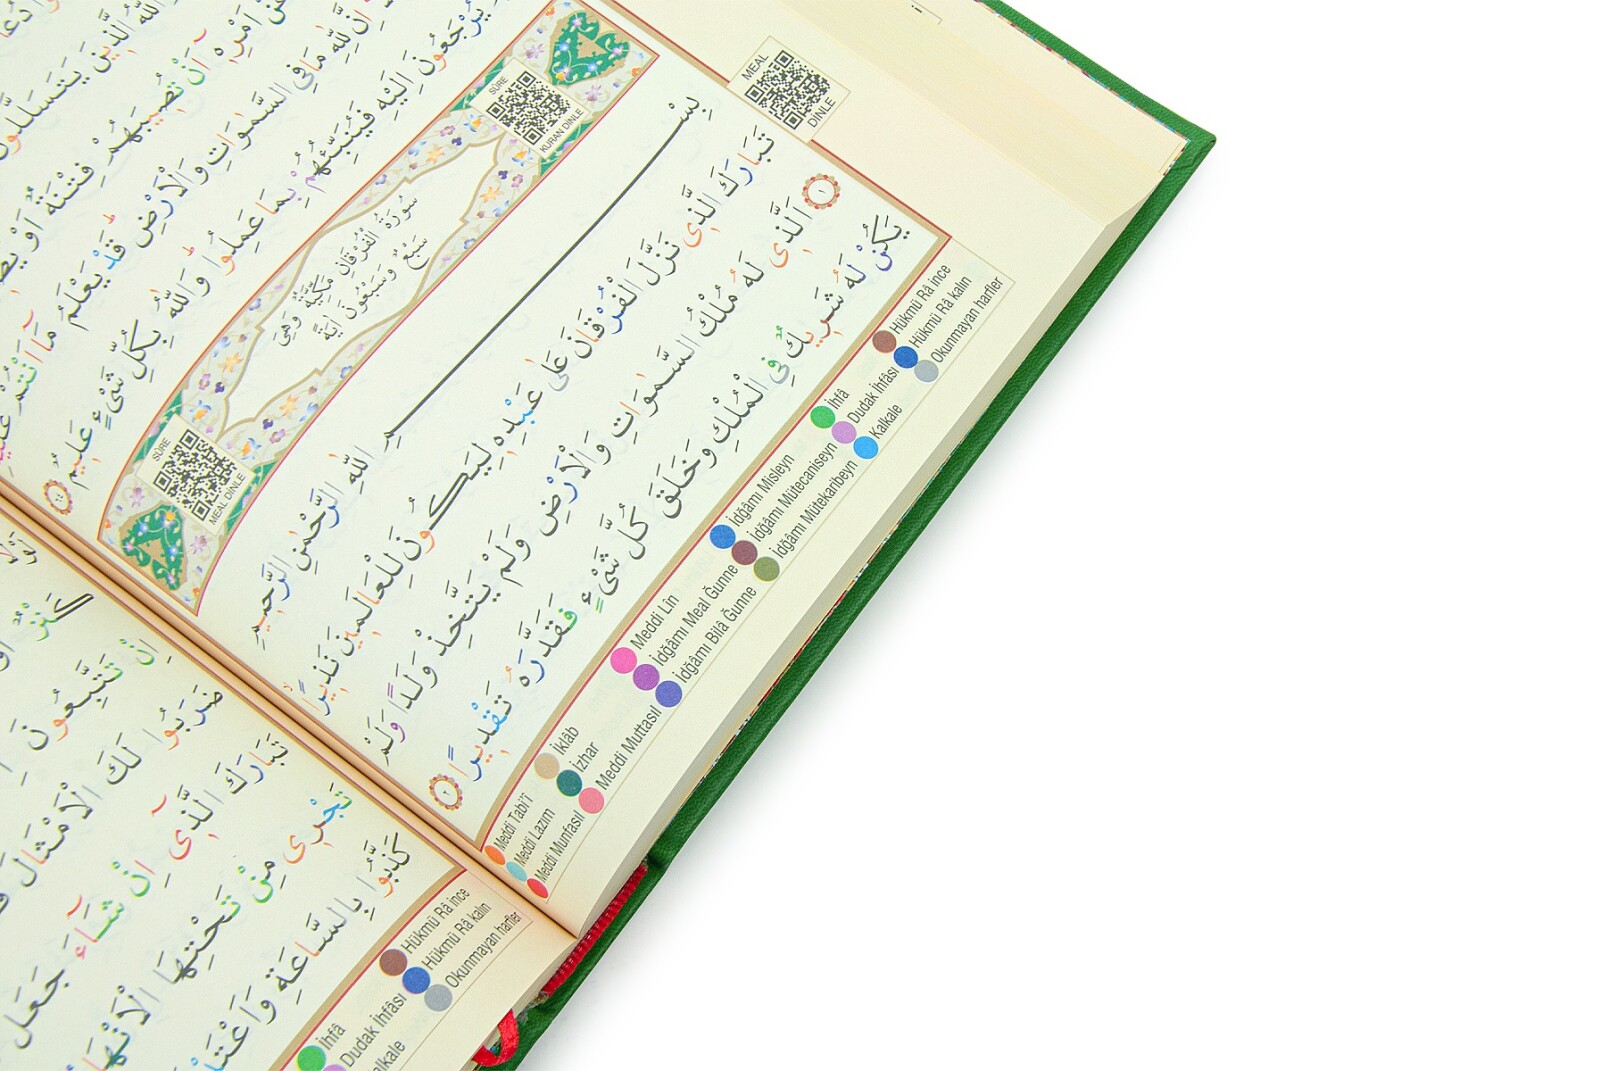 يَتَسَلَّلُونَ
اَمْرِهٖٓ اَنْ تُصٖيبَهُمْ فِتْنَةٌ اَوْ
اِنَّ لِلّٰهِ مَا فِى السَّمٰوَاتِ وَالْاَرْضِ قَدْ يَعْلَمُ مَٓا اَنْتُمْ
يُرْجَعُونَ اِلَيْهِ فَيُنَبِّئُهُمْ بِمَا عَمِلُوا وَاللّٰهُ بِكُلِّ شَىْءٍ عَلٖيمٌ ٦٤
SÛRE
KURAN DİNLE
سُورَةُ الْفُرْقَانِ مَكِّيَّةٌ وَهِىَ
سَبْعٌ وَسَبْعُونَ اٰيَةً
SÛRE
MEAL DİNLE
MEAL
DİNLE
بِسْمِ اللّٰهِ الرَّحْمٰنِ الرَّحٖيمِ
تَبَارَكَ الَّذٖى نَزَّلَ الْفُرْقَانَ عَلٰى عَبْدِهٖ لِيَكُونَ لِلْعَالَمٖينَ نَذٖيرًا
١ اَلَّذٖى لَهُ مُلْكُ السَّمٰوَاتِ وَالْاَرْضِ وَلَمْ يَتَّخِذْ وَلَدًا وَلَمْ
يَكُنْ لَهُ شَرٖيكٌ فِى الْمُلْكِ وَخَلَقَ كُلَّ شَىْءٍ فَقَدَّرَهُ تَقْدٖيرًا ٢
Meddi Tabi'î
Meddi Lazım
Meddi Munfasıl
İklâb
İzhar
Meddi Muttasıl
Meddi Lîn
İdğâmı Meal Ğunne
İdğâmı Bilâ Ğunne
İdğâmı Misleyn
İdğâmı Mütecaniseyn
İdğâmı Mütekaribeyn
İhfâ
Dudak İhfâsı
Kalkale
Hükmü Râ ince
Hükmü Râ kalın
Okunmayan harfler
كَنْزٌ اَوْ
اِنْ تَتَّبِعُونَ
ضَرَبُوا لَكَ الْاَمْثَالَ
تَبَارَكَ الَّذٖٓى اِنْ شَٓاءَ جَعَلَ
تَجْرٖى مِنْ تَحْتِهَا الْاَنْهَا
كَذَّبُوا بِالسَّاعَةِ وَاَعْتَدْنَا
İhfâ
Dudak İhfâsı
alkale
Hükmü Râ ince
Hükmü Râ kalın
Okunmayan harfler